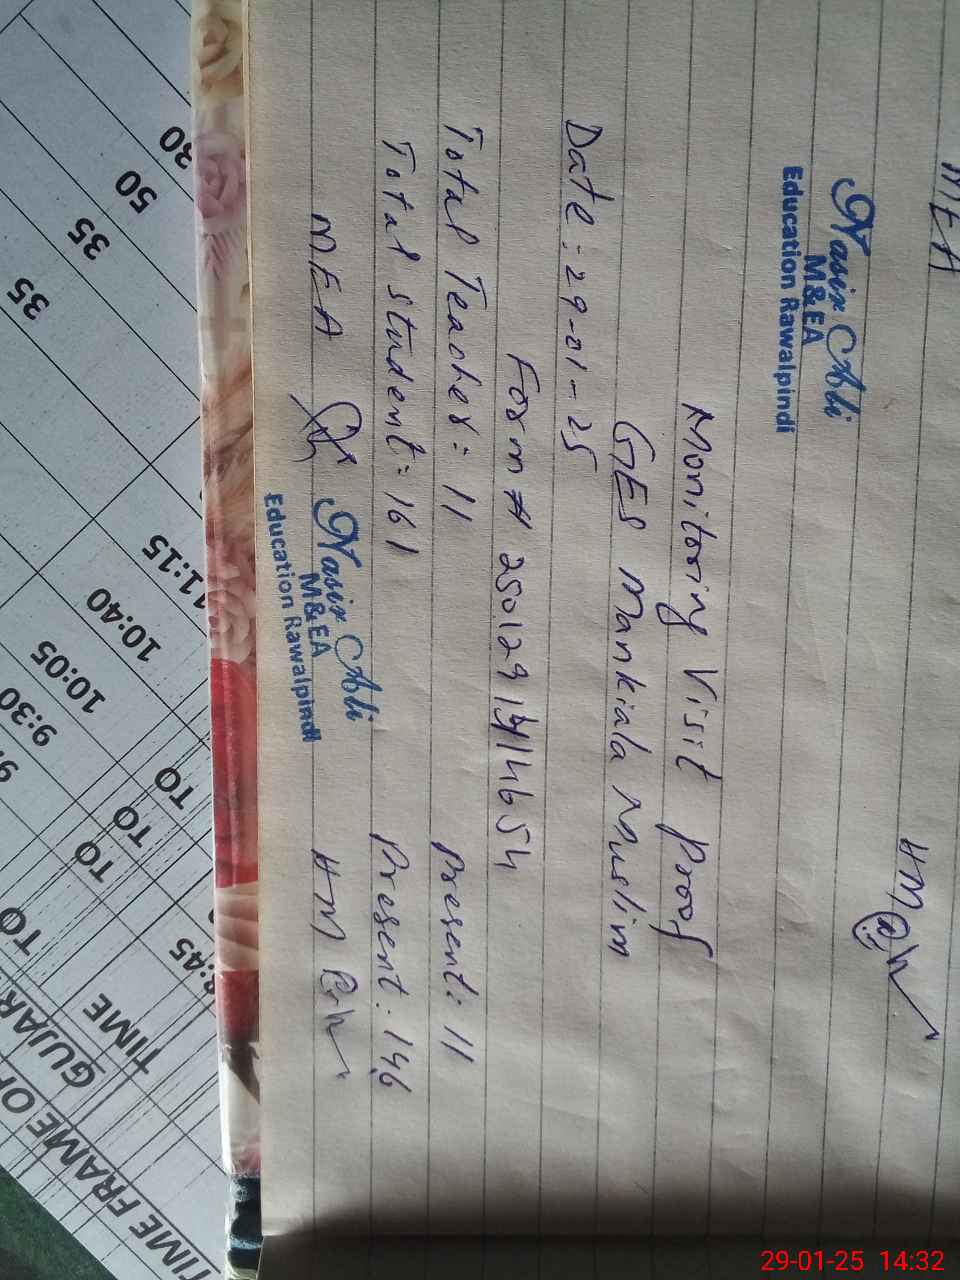 MEA
HM
Nasir Ali
M&EA
Education Rawalpindi
Monitoring Visit Proof
GES Mankiala Muslim
Date: 29-01-25
Form #
Total Teacher: 11 Present: 11
Total student: 161 Present: 146
MEA HM
Nasir Ali
M&EA
Education Rawalpindi
30
50
35
35
11:15
10:40
10:05
9:30
TO
TO
TO
TO
8:45
TIME
GUJAR
TIME FRAME OF
29-01-25 14:32